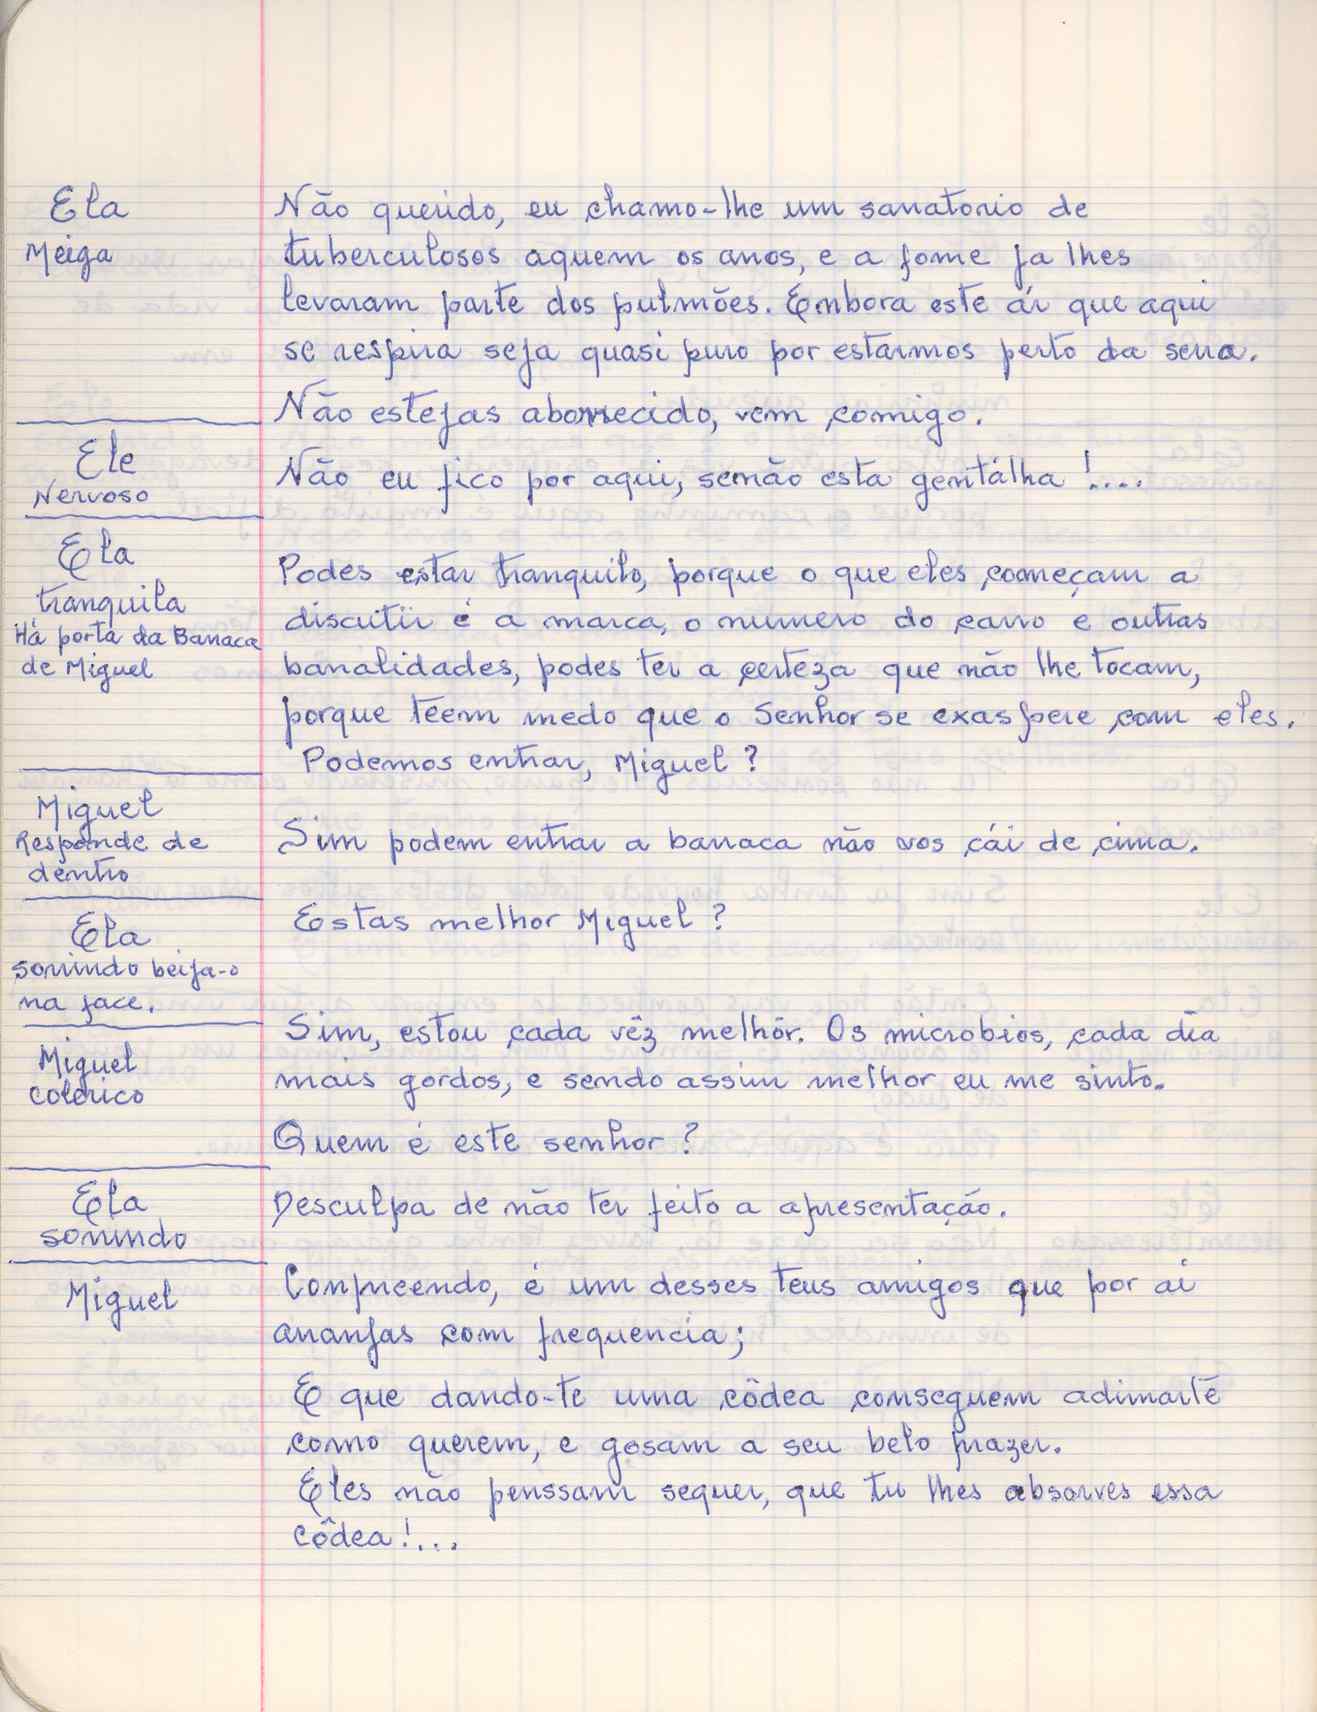 Ela
Meiga
Não querido, eu chamo-lhe um sanatorio de
tuberculosos aquem os anos, e a fome ja lhes
levaram parte dos pulmões. Embora este ár que aqui
se respira seja quasi puro por estarmos perto da serra.
Não estejas aborrecido, vem comigo.
Ele
Nervoso
Não eu fico por aqui, semão esta gentálha !....
Ela
tranquila
Há porta da Barraca
de Miguel
Podes estar tranquilo, porque o que eles começam a
discutir é a marca, o numero do carro e outras
banalidades, podes ter a certeza que não lhe tocam,
porque teem medo que o Senhor se exaspere com eles.
Podemos entrar, Miguel ?
Miguel
Responde de
dentro
Sim podem entrar a barraca não vos cái de cima.
Ela
sorrindo beija-o
na face.
Estas melhor Miguel ?
Miguel
Colerico
Sim, estou cada vêz melhór. Os microbios, cada dia
mais gordos, e sendo assim melhor eu me sinto.
Quem é este senhor ?
Ela
sorrindo
Desculpa de não ter feito a apresentação.
Miguel
Conpreendo, é um desses teus amigos que por ai
arranjas com frequencia;
E que dando-te uma côdea conseguem adimarte
como querem, e gosam a seu belo prazer.
Eles não penssam sequer, que tu lhes absorves essa
Côdea !...